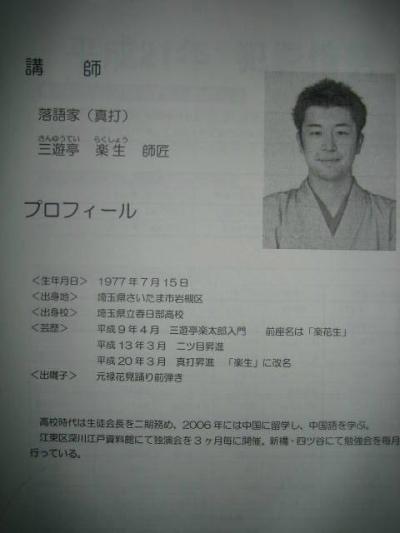 講　師
落語家（真打）
さんゆうてい　らくしょう
三遊亭　楽生　師匠
プロフィール
＜生年月日＞　1977年7月15日
＜出身地＞　埼玉県さいたま市岩槻区
＜出身校＞　埼玉県立春日部高校
＜芸歴＞　平成9年4月　三遊亭楽太郎入門　前座名は「楽花生」
平成13年3月　二ツ目昇進
平成20年3月　真打昇進　「楽生」に改名
＜出囃子＞　元禄花見踊り前弾き
高校時代は生徒会長を二期務め、2006年には中国に留学し、中国語を学ぶ。
江東区深川江戸資料館にて独演会を3ヶ月毎に開催。新橋・四ツ谷にて勉強会を毎月
行っている。